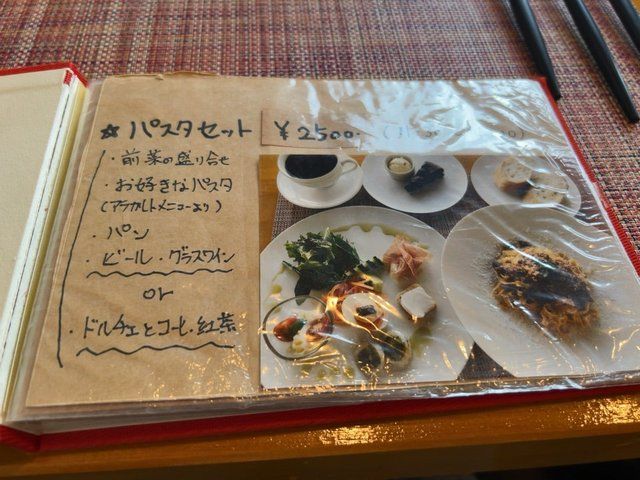 ☆ パスタセット ¥2500.
・前菜の盛り合せ
・お好きなパスタ
(アラカルトメニューより)
・パン
・ビール・グラスワイン
or
・ドルチェとコーヒ・紅茶